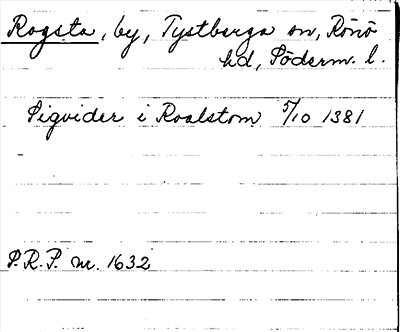 Rogsta, by, Tystberga sn, Rönö
hd, Söderm. l.
Sigvider i Roalstom 5/10 1381
S.R.P. nr. 1632